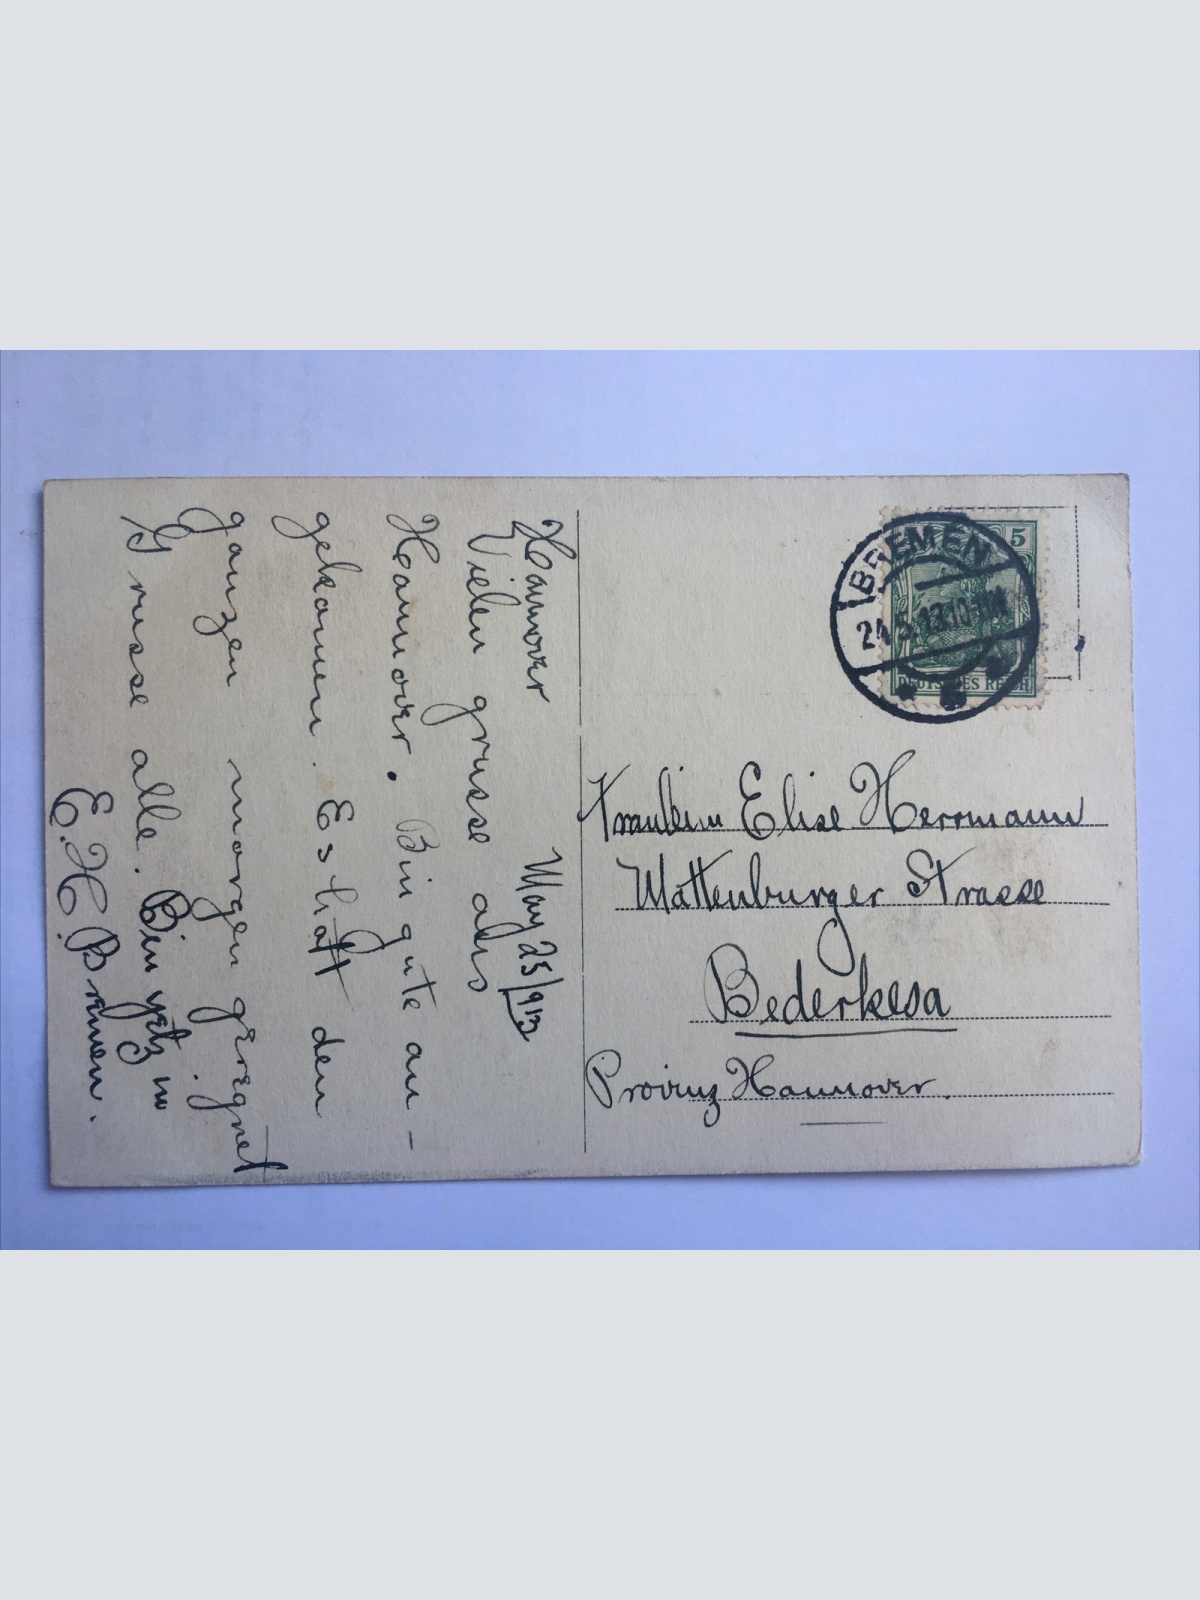 Hannover
May 25/913
Vielen grusse aus
Hannover. Bin gute an-
gekommen. Es hat den
ganzen morgen geregnet.
Grusse alle. Bin yetz in
E.H. Bremen.
BREMEN
24.5.13.10-11N
5
DEUTSCHES REICH
Fraulein Elise Herrmann
Mattenburger Strasse
Bederkesa
Provinz Hannover.